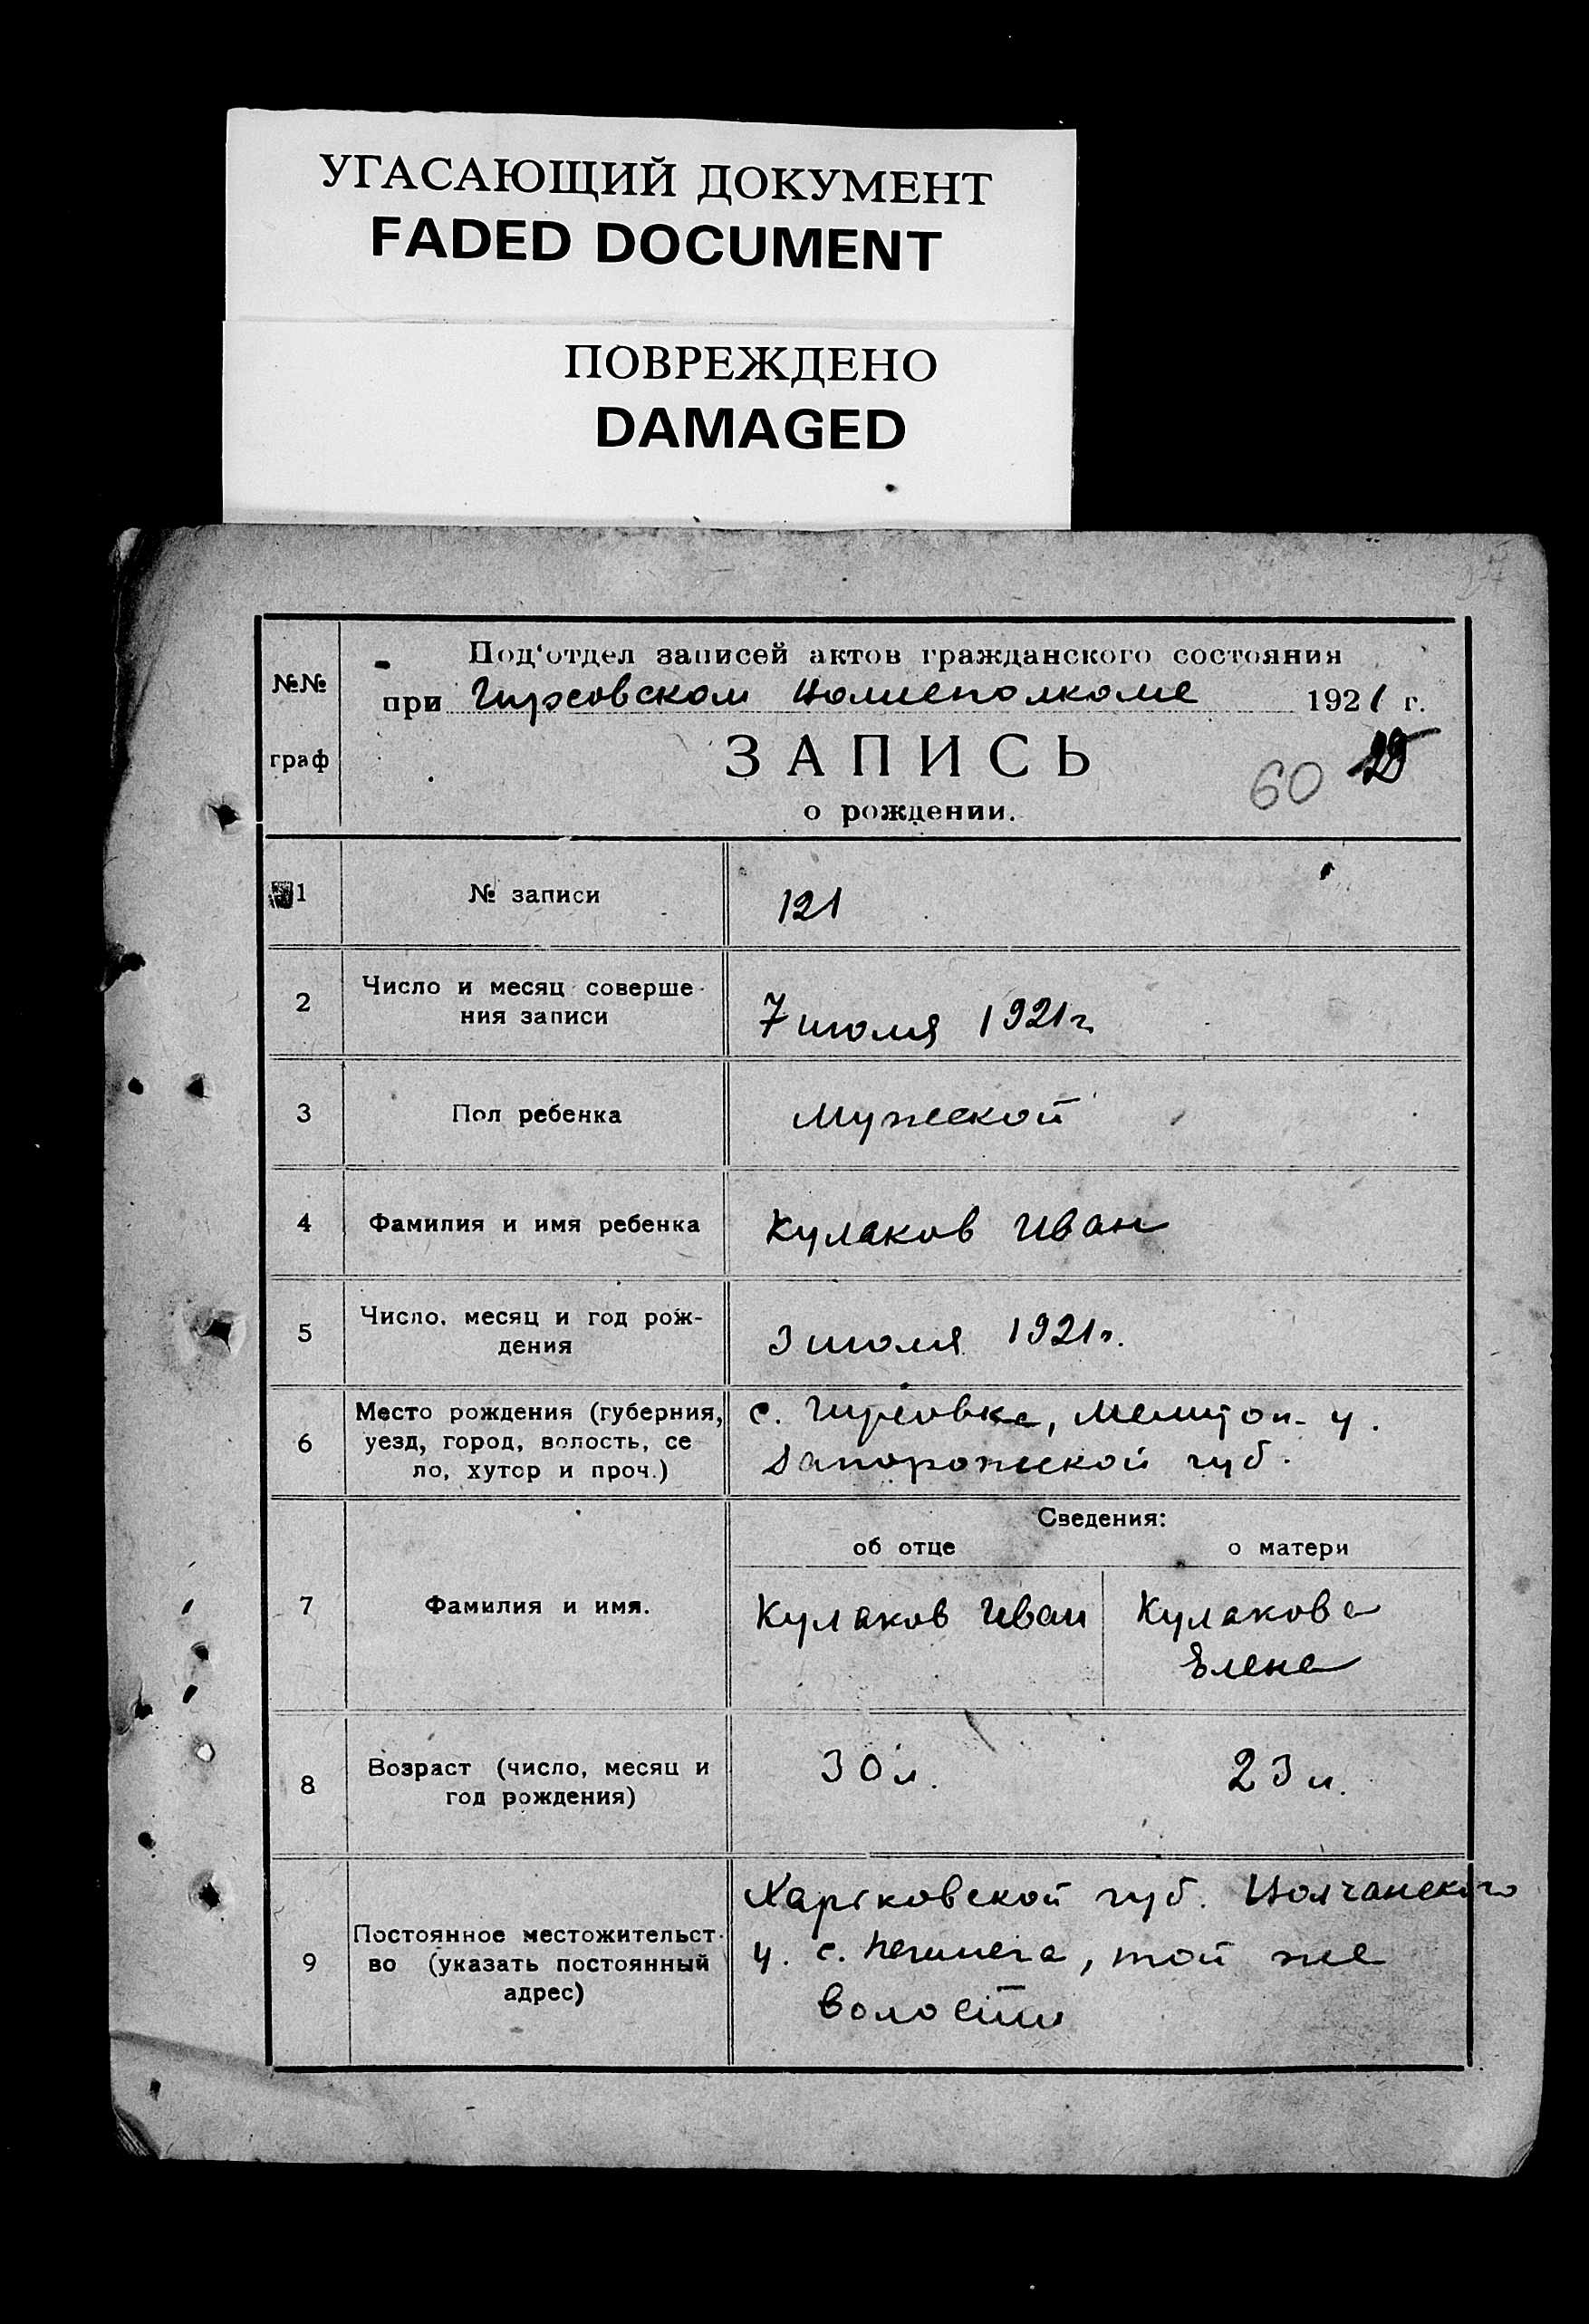 УГАСАЮЩИЙ ДОКУМЕНТ
FADED DOCUMENT
ПОВРЕЖДЕНО
DAMAGED
№№
граф
Под'отдел записей актов гражданского состояния
при Гирсовском Волисполкоме 1921 г.
ЗАПИСЬ
60
о рождении.
1 № записи 121
2 Число и месяц соверше-
ния записи 7 июля 1921 г.
3 Пол ребенка Мужской
4 Фамилия и имя ребенка Кулаков Иван
5 Число, месяц и год рож-
дения 3 июля 1921 г.
6 Место рождения (губерния, с. Гирсовка, Мелитоп. у.
уезд, город, волость, се
ло, хутор и проч.) Запорожской губ.
Сведения:
об отце о матери
7 Фамилия и имя. Кулаков Иван Кулакова
Елена
8 Возраст (число, месяц и 30 л. 23 л.
год рождения)
Харьковской губ. Волчанского
9 Постоянное местожительст-
во (указать постоянный у. с. Печенега, той же
адрес) волости